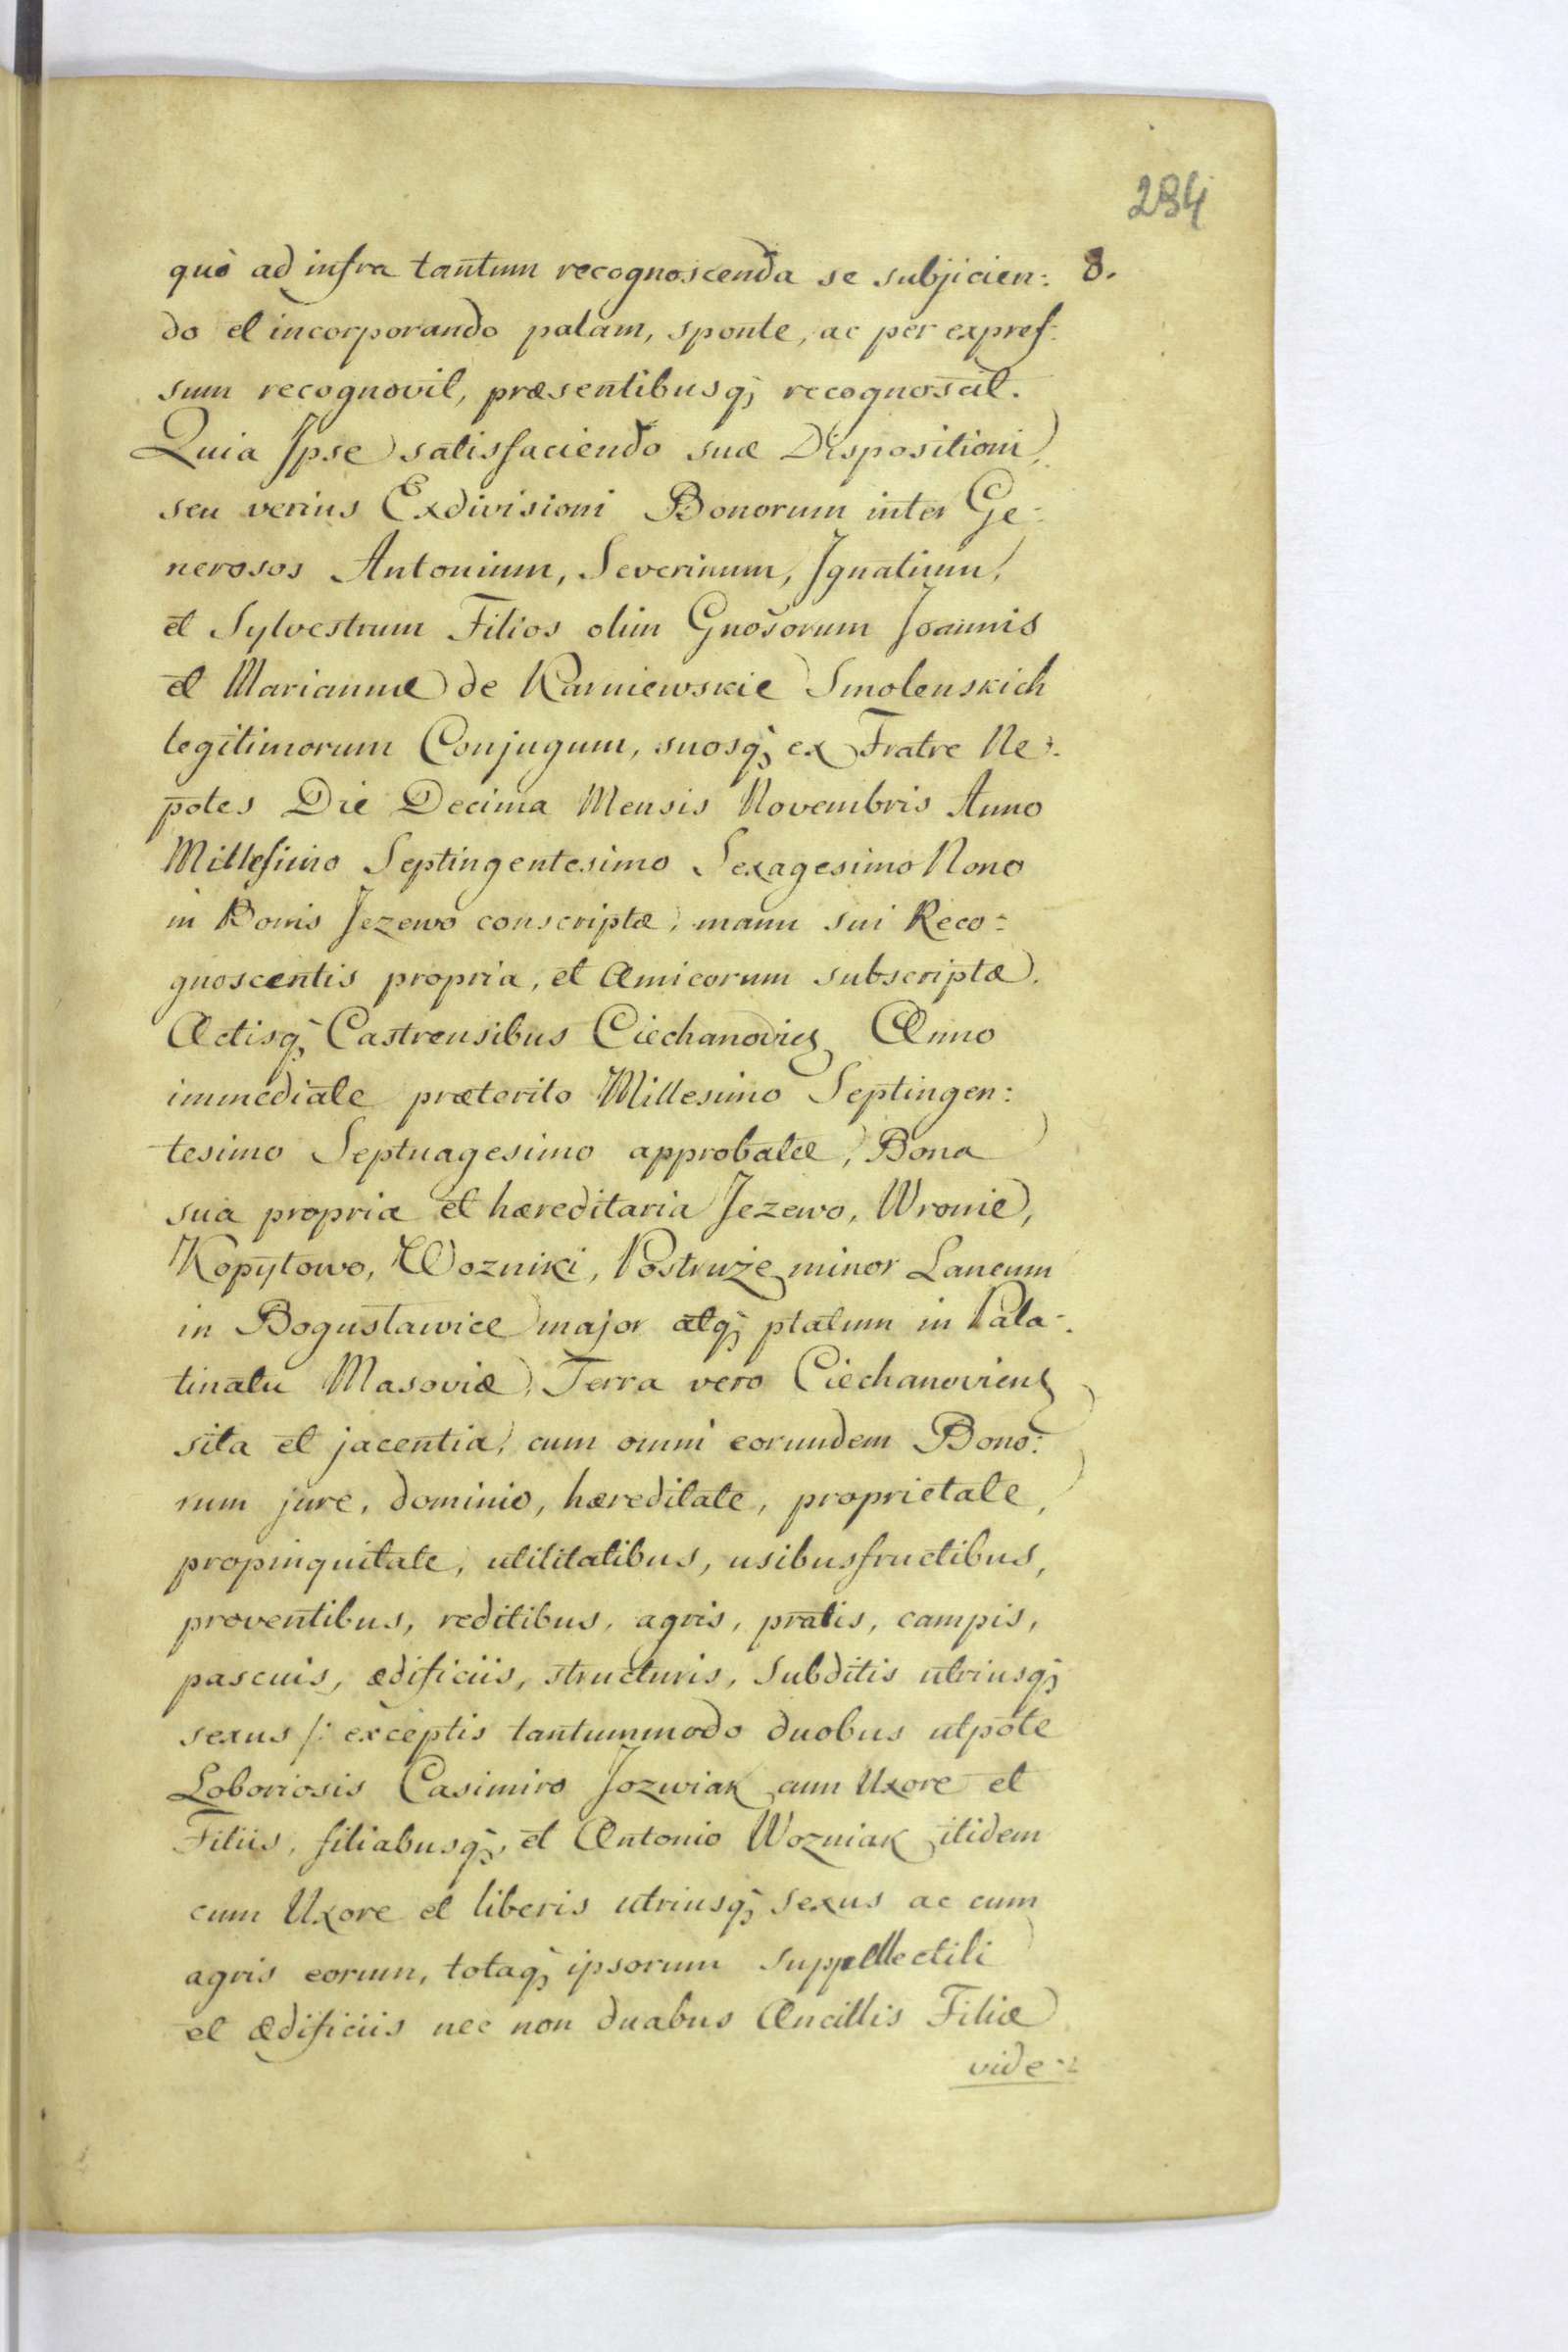 284
quò ad infra tantum recognoscenda se subjicien: 8.
do et incorporando palam, sponte, ac per expres:
sum recognovit, præsentibusq; recognoscit.
Quia Ipse satisfaciendo suæ Dispositioni,
seu verius Exdivisioni Bonorum inter Ge:
nerosos Antonium, Severinum, Ignatium,
et Sylvestrum Filios olim Gnosorum Joannis
et Mariannæ de Karniewskie Smolenskich
legitimorum Conjugum, suosq; ex Fratre Ne:
potes Die Decima Mensis Novembris Anno
Millesimo Septingentesimo Sexagesimo Nono
in Bonis Jezewo conscriptæ, manu sui Reco:
gnoscentis propria, et Amicorum subscriptæ.
Actisq; Castrensibus Ciechanovien Anno
immediate præterito Millesimo Septingen:
tesimo Septuagesimo approbatæ, Bona
sua propria et hæreditaria Jezewo, Wronie,
Kopytowo, Wozniki, Postruże minor Laneum
in Bogusławice major atq; ptatum in Pala:
tinatu Masoviæ, Terra vero Ciechanoviens
sita et jacentia, cum omni eorundem Bono:
rum jure, dominio, hæreditate, proprietate,
propinquitate, utilitatibus, usibusfructibus,
proventibus, reditibus, agris, pratis, campis,
pascuis, ædificiis, structuris, Subditis utriusq;
sexus /: exceptis tantummodo duobus utpote
Loboriosis Casimiro Jozwiak cum Uxore et
Filiis, filiabusq;, et Antonio Wozniak itidem
cum Uxore et liberis utriusq; sexus ac cum
agris eorum, totaq; ipsorum suppellectili
et ædificiis nec non duabus Ancillis Filiæ
vide: